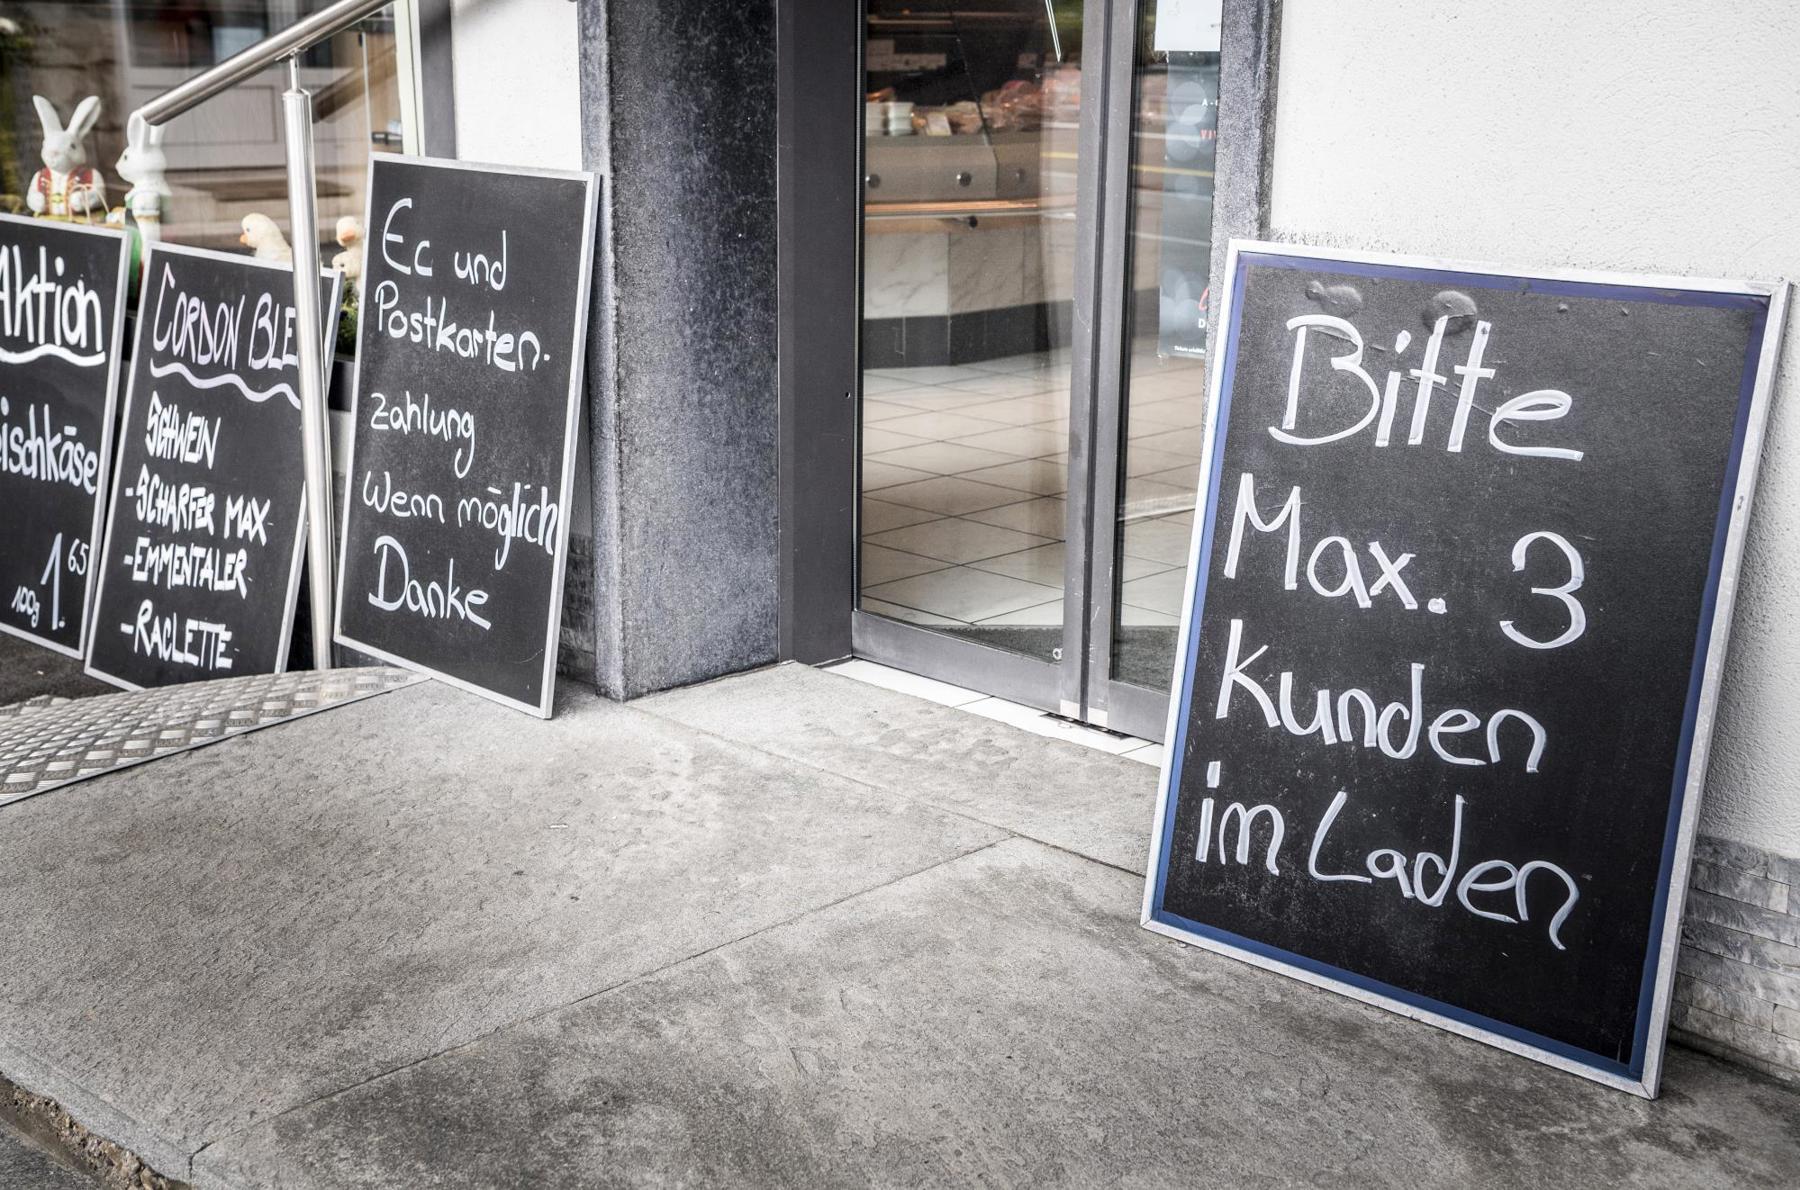 Aktion
100g 1.65
CORDON BLE
SCHWEIN
-SCHARFER MAX
-EMMENTALER
-RACLETTE
Ec und
Postkarten.
zahlung
Wenn möglich
Danke
Bitte
Max. 3
Kunden
im Laden